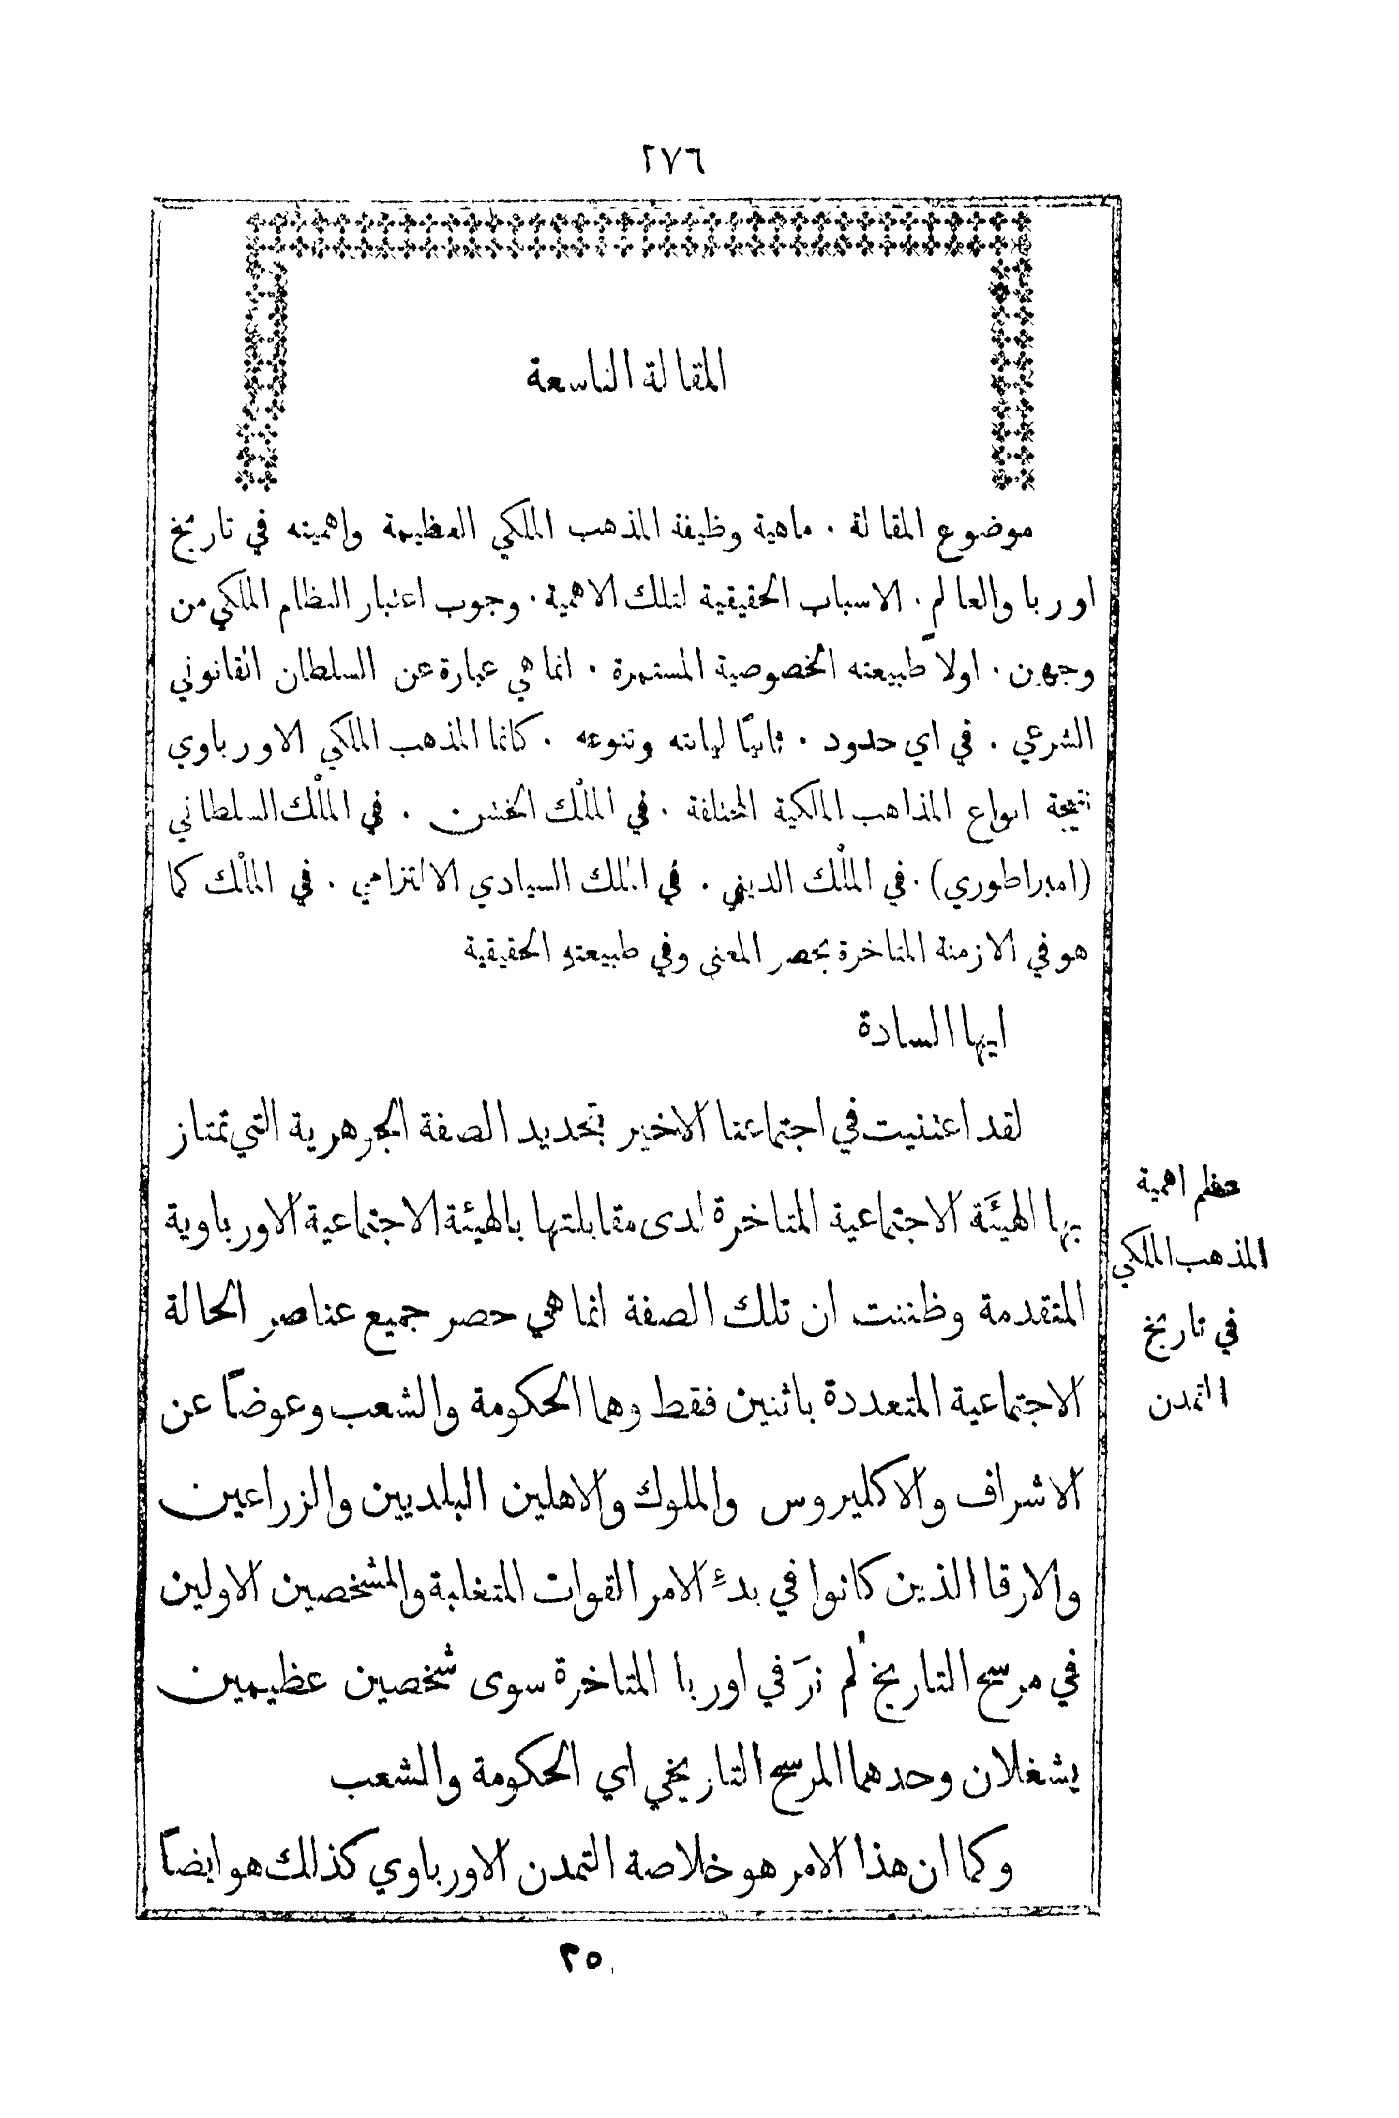 ٢٧٦
المقالة التاسعة
موضوع المقالة . ماهية وظيفة المذهب الملكي العظيمة واهميته في تاريخ
اوربا والعالم . الاسباب الحقيقية لتلك الاهمية . وجوب اعتبار النظام الملكي من
وجهين . اولاً طبيعته الخصوصية المستمرة . انما هي عبارة عن السلطان القانوني
الشرعي . في اي حدود . ثانيًا ليانته وتنوعه . كانما المذهب الملكي الاورباوي
نتيجة انواع المذاهب المالكية المختلفة . في المُلْك الخشن . في المُلْك السلطاني
(امبراطوري) . في المُلْك الديني . في الملك السيادي الالتزامي . في المُلْك كما
هو في الازمنة المتاخرة بحصر المعنى وفي طبيعته الحقيقية
ايها السادة
لقد اعتنيت في اجتماعنا الاخير بتحديد الصفة الجوهرية التي تمتاز
بها الهيئَة الاجتماعية المتاخرة لدى مقابلتها بالهيئة الاجتماعية الاورباوية
المتقدمة وظننت ان تلك الصفة انما هي حصر جميع عناصر الحالة
الاجتماعية المتعددة باثنين فقط وهما الحكومة والشعب وعوضًا عن
الاشراف والاكليروس والملوك والاهلين البلديين والزراعين
والارقا الذين كانوا في بدءِ الامر القوات المتغلبة والمشخصين الاولين
في مرسح التاريخ لم نرَ في اوربا المتاخرة سوى شخصين عظيمين
يشغلان وحدهما المرسح التاريخي اي الحكومة والشعب
وكما ان هذا الامر هو خلاصة التمدن الاورباوي كذلك هو ايضًا
عظم اهمية
المذهب الملكي
في تاريخ
التمدن
٢٥